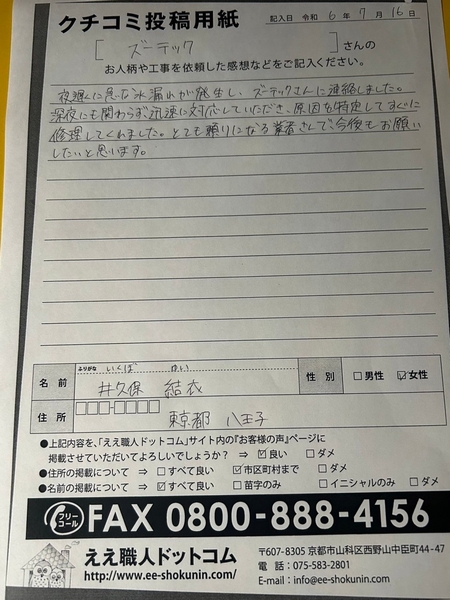 クチコミ投稿用紙 記入日 令和 6 年 7 月 16 日
[ ズーテック ] さんの
お人柄や工事を依頼した感想などをご記入ください。
夜遅くに急な水漏れが発生し、ズーテックさんに連絡しました。
深夜にも関わらず、迅速に対応していただき、原因を特定してすぐに
修理してくれました。とても頼りになる業者さんで、今後もお願い
したいと思います。
ふりがな いくぼ ゆい
名前 井久保 結衣 性別 □男性 ☑女性
住所 □□□-□□□□ 東京都 八王子
●上記内容を、「ええ職人ドットコム」サイト内の『お客様の声』ページに
掲載させていただいてよろしいでしょうか? ⇒ ☑良い □ダメ
●住所の掲載について ⇒ □すべて良い ☑市区町村まで □ダメ
●名前の掲載について ⇒ ☑すべて良い □苗字のみ □イニシャルのみ □ダメ
フリーコール FAX 0800-888-4156
ええ職人ドットコム
http://www.ee-shokunin.com/
〒607-8305 京都市山科区西野山中臣町44-47
電話:075-583-2801
E-mail:info@ee-shokunin.com